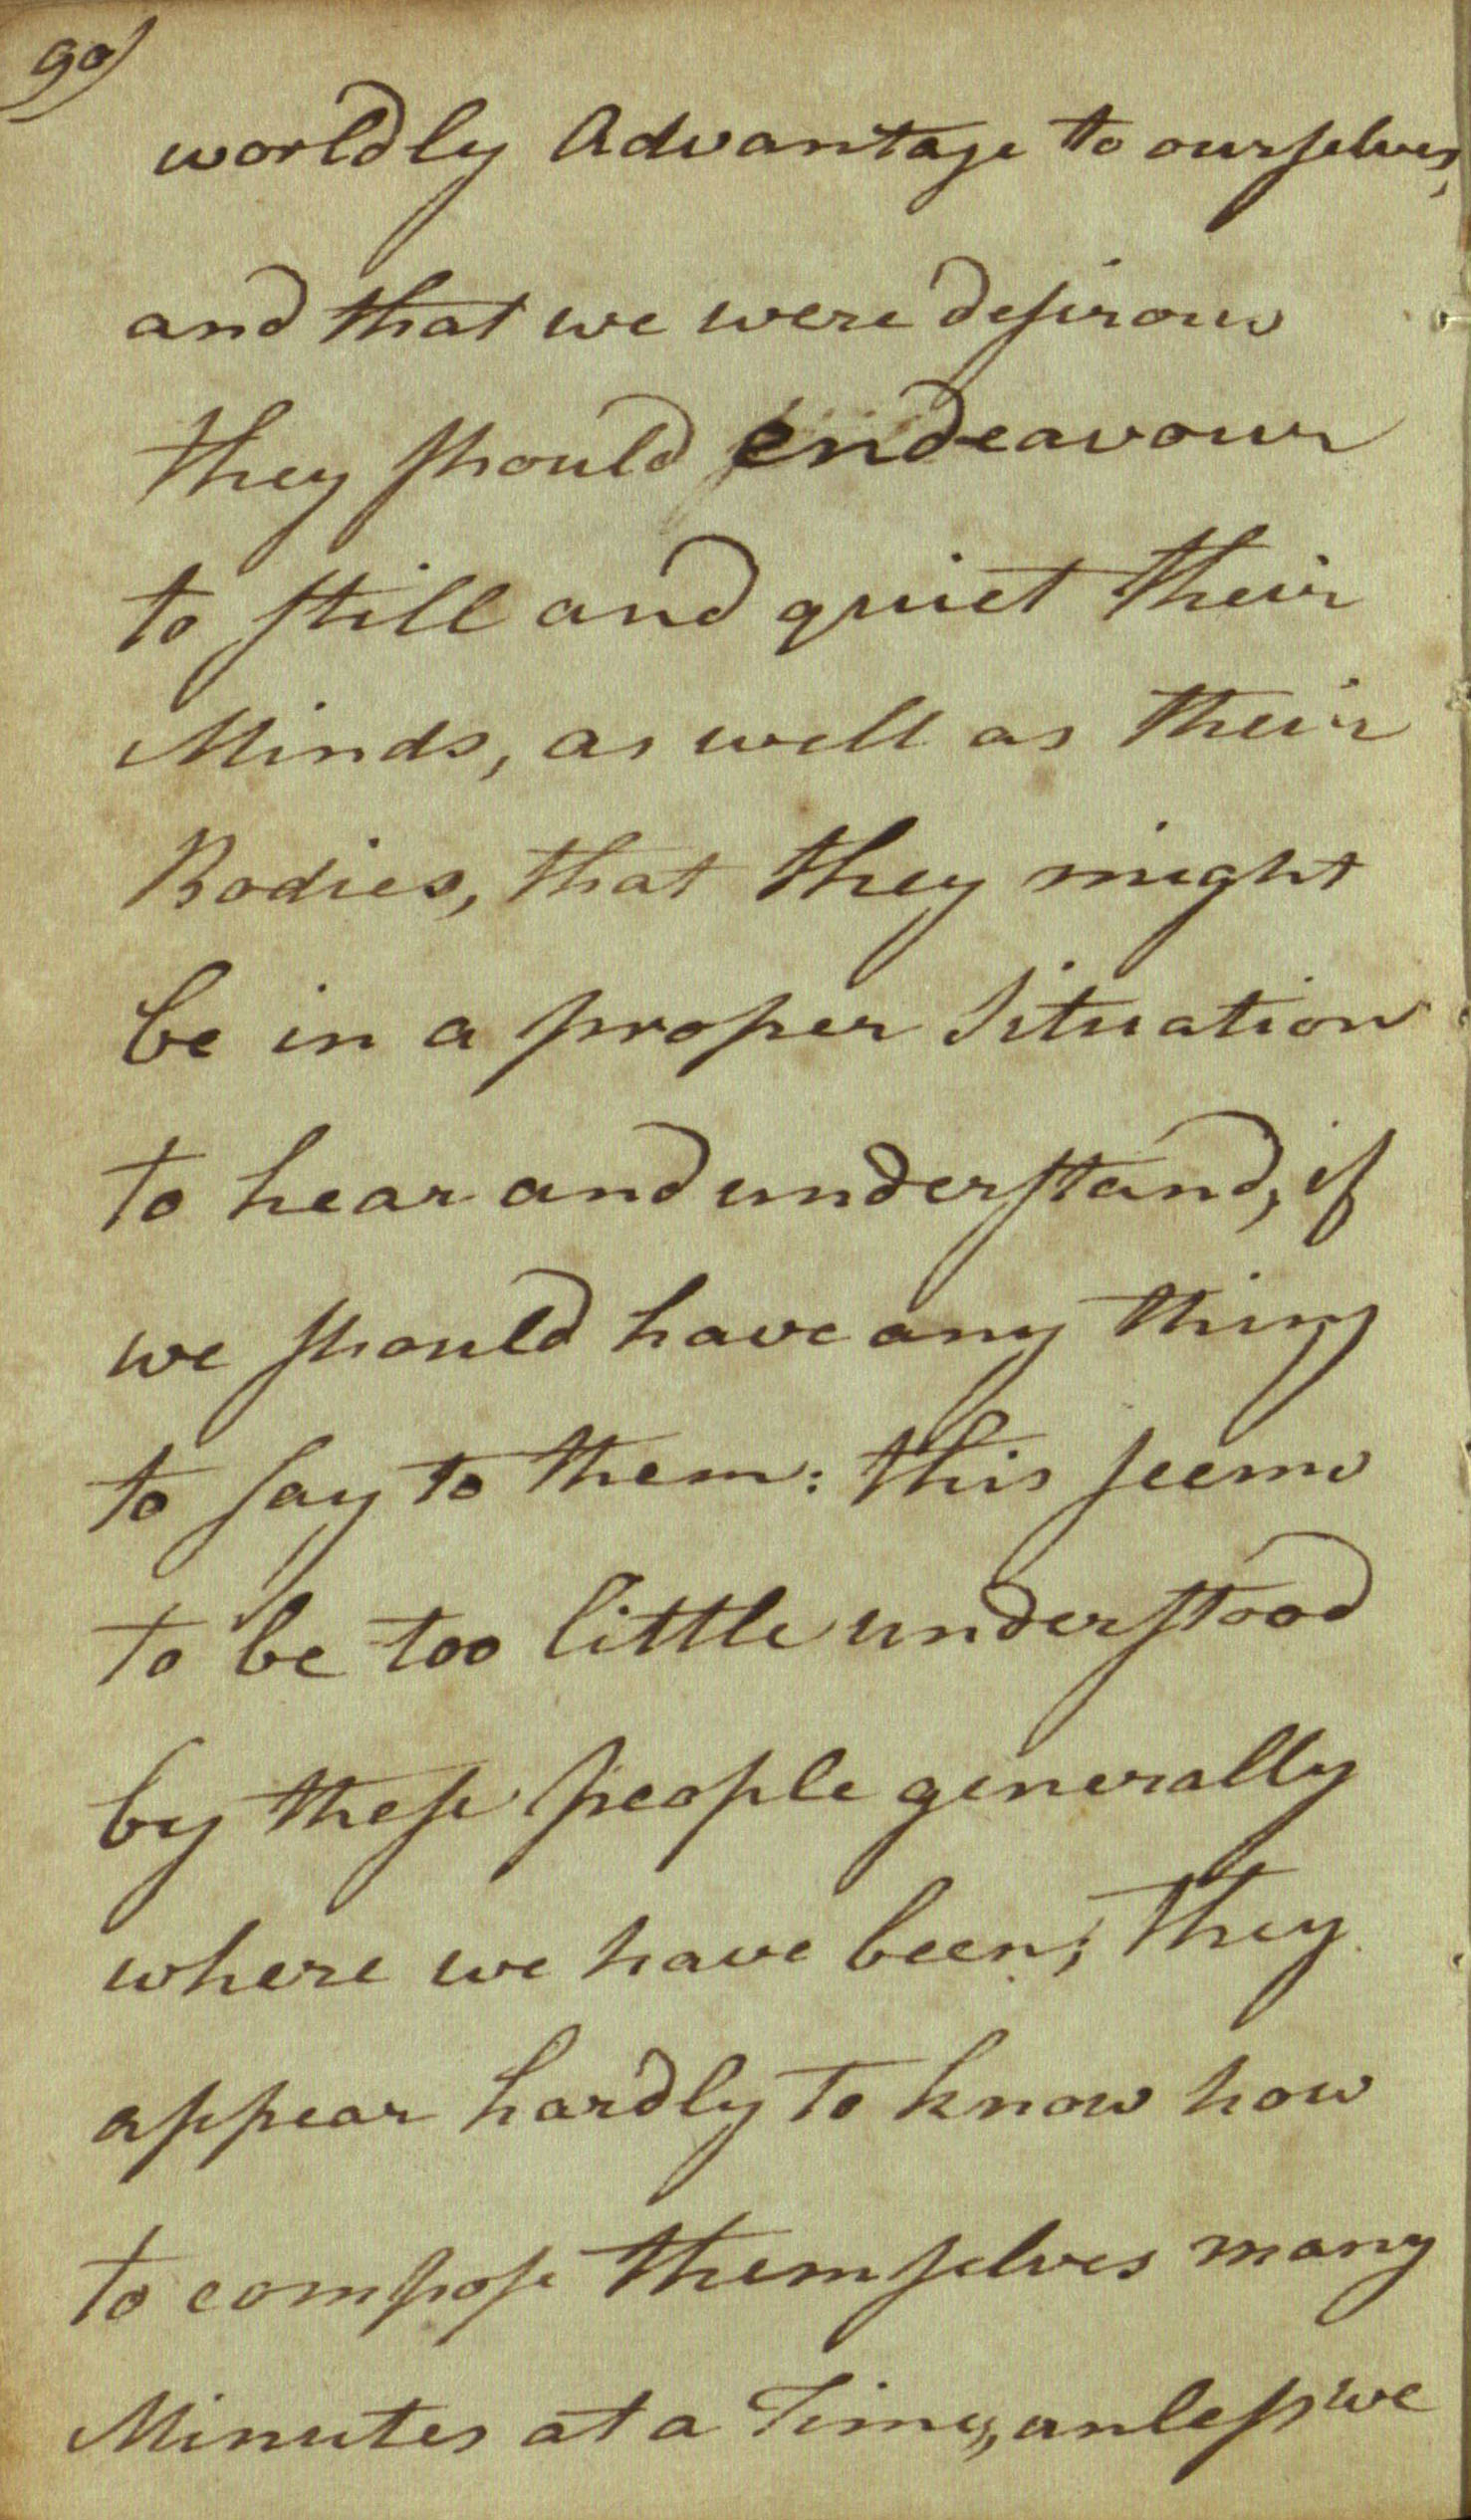 90)
worldly Advantage to ourselves,
and that we were desirous
they should endeavour
to still and quiet their
Minds, as well as their
Bodies, that they might
be in a proper Situation
to hear and understand, if
we should have any thing
to say to them: this seems
to be too little understood
by these people generally
where we have been; they
appear hardly to know how
to compose themselves many
Minutes at a Time, unless we